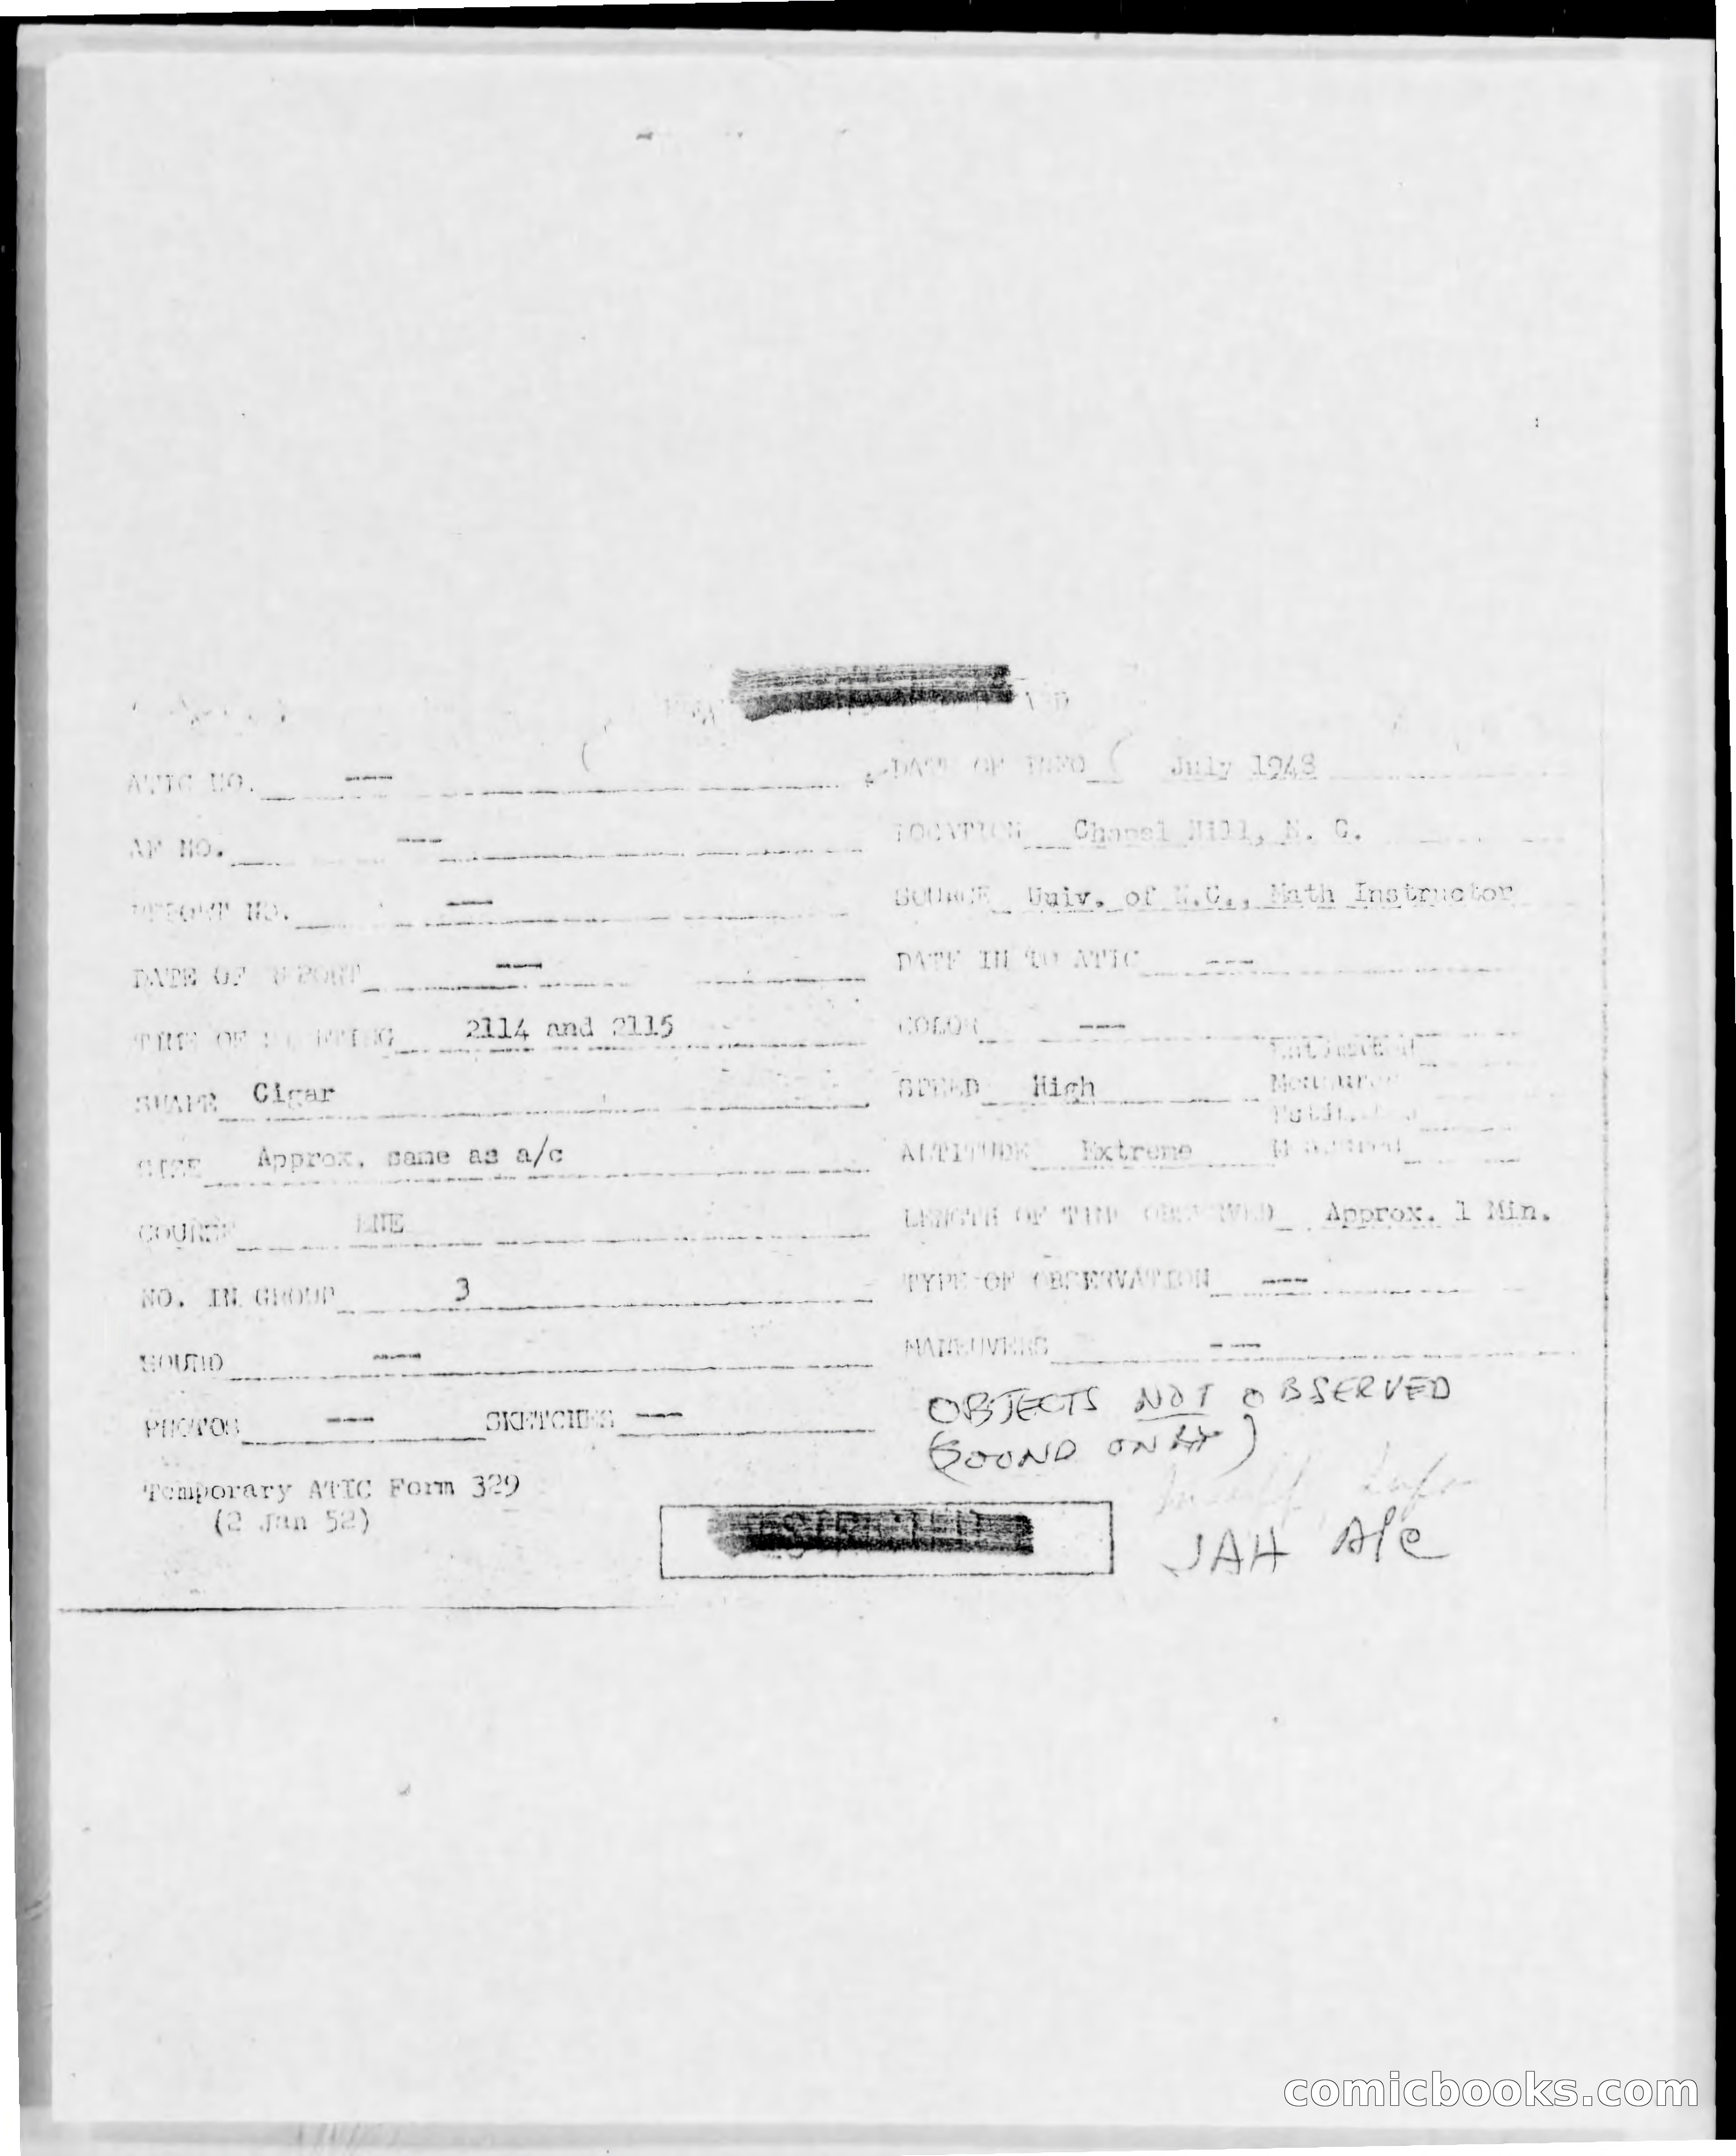 ATIC NO. ---
DATE OF INFO ( July 1948
AF NO. ---
LOCATION Chapel Hill, N. C.
REPORT NO. ---
SOURCE Univ. of N.C., Math Instructor
DATE OF REPORT ---
DATE IN TO ATIC ---
TIME OF SIGHTING 2114 and 2115
COLOR ---
SHAPE Cigar
SPEED High
SIZE Approx. same as a/c
ALTITUDE Extreme
COURSE ENE
LENGTH OF TIME OBSERVED Approx. 1 Min.
NO. IN GROUP 3
TYPE OF OBSERVATION ---
SOUND ---
MANEUVERS ---
PHOTOS --- SKETCHES ---
OBJECTS NOT OBSERVED
(SOUND ONLY)
Temporary ATIC Form 329
(2 Jan 52)
JAH A/C
comicbooks.com